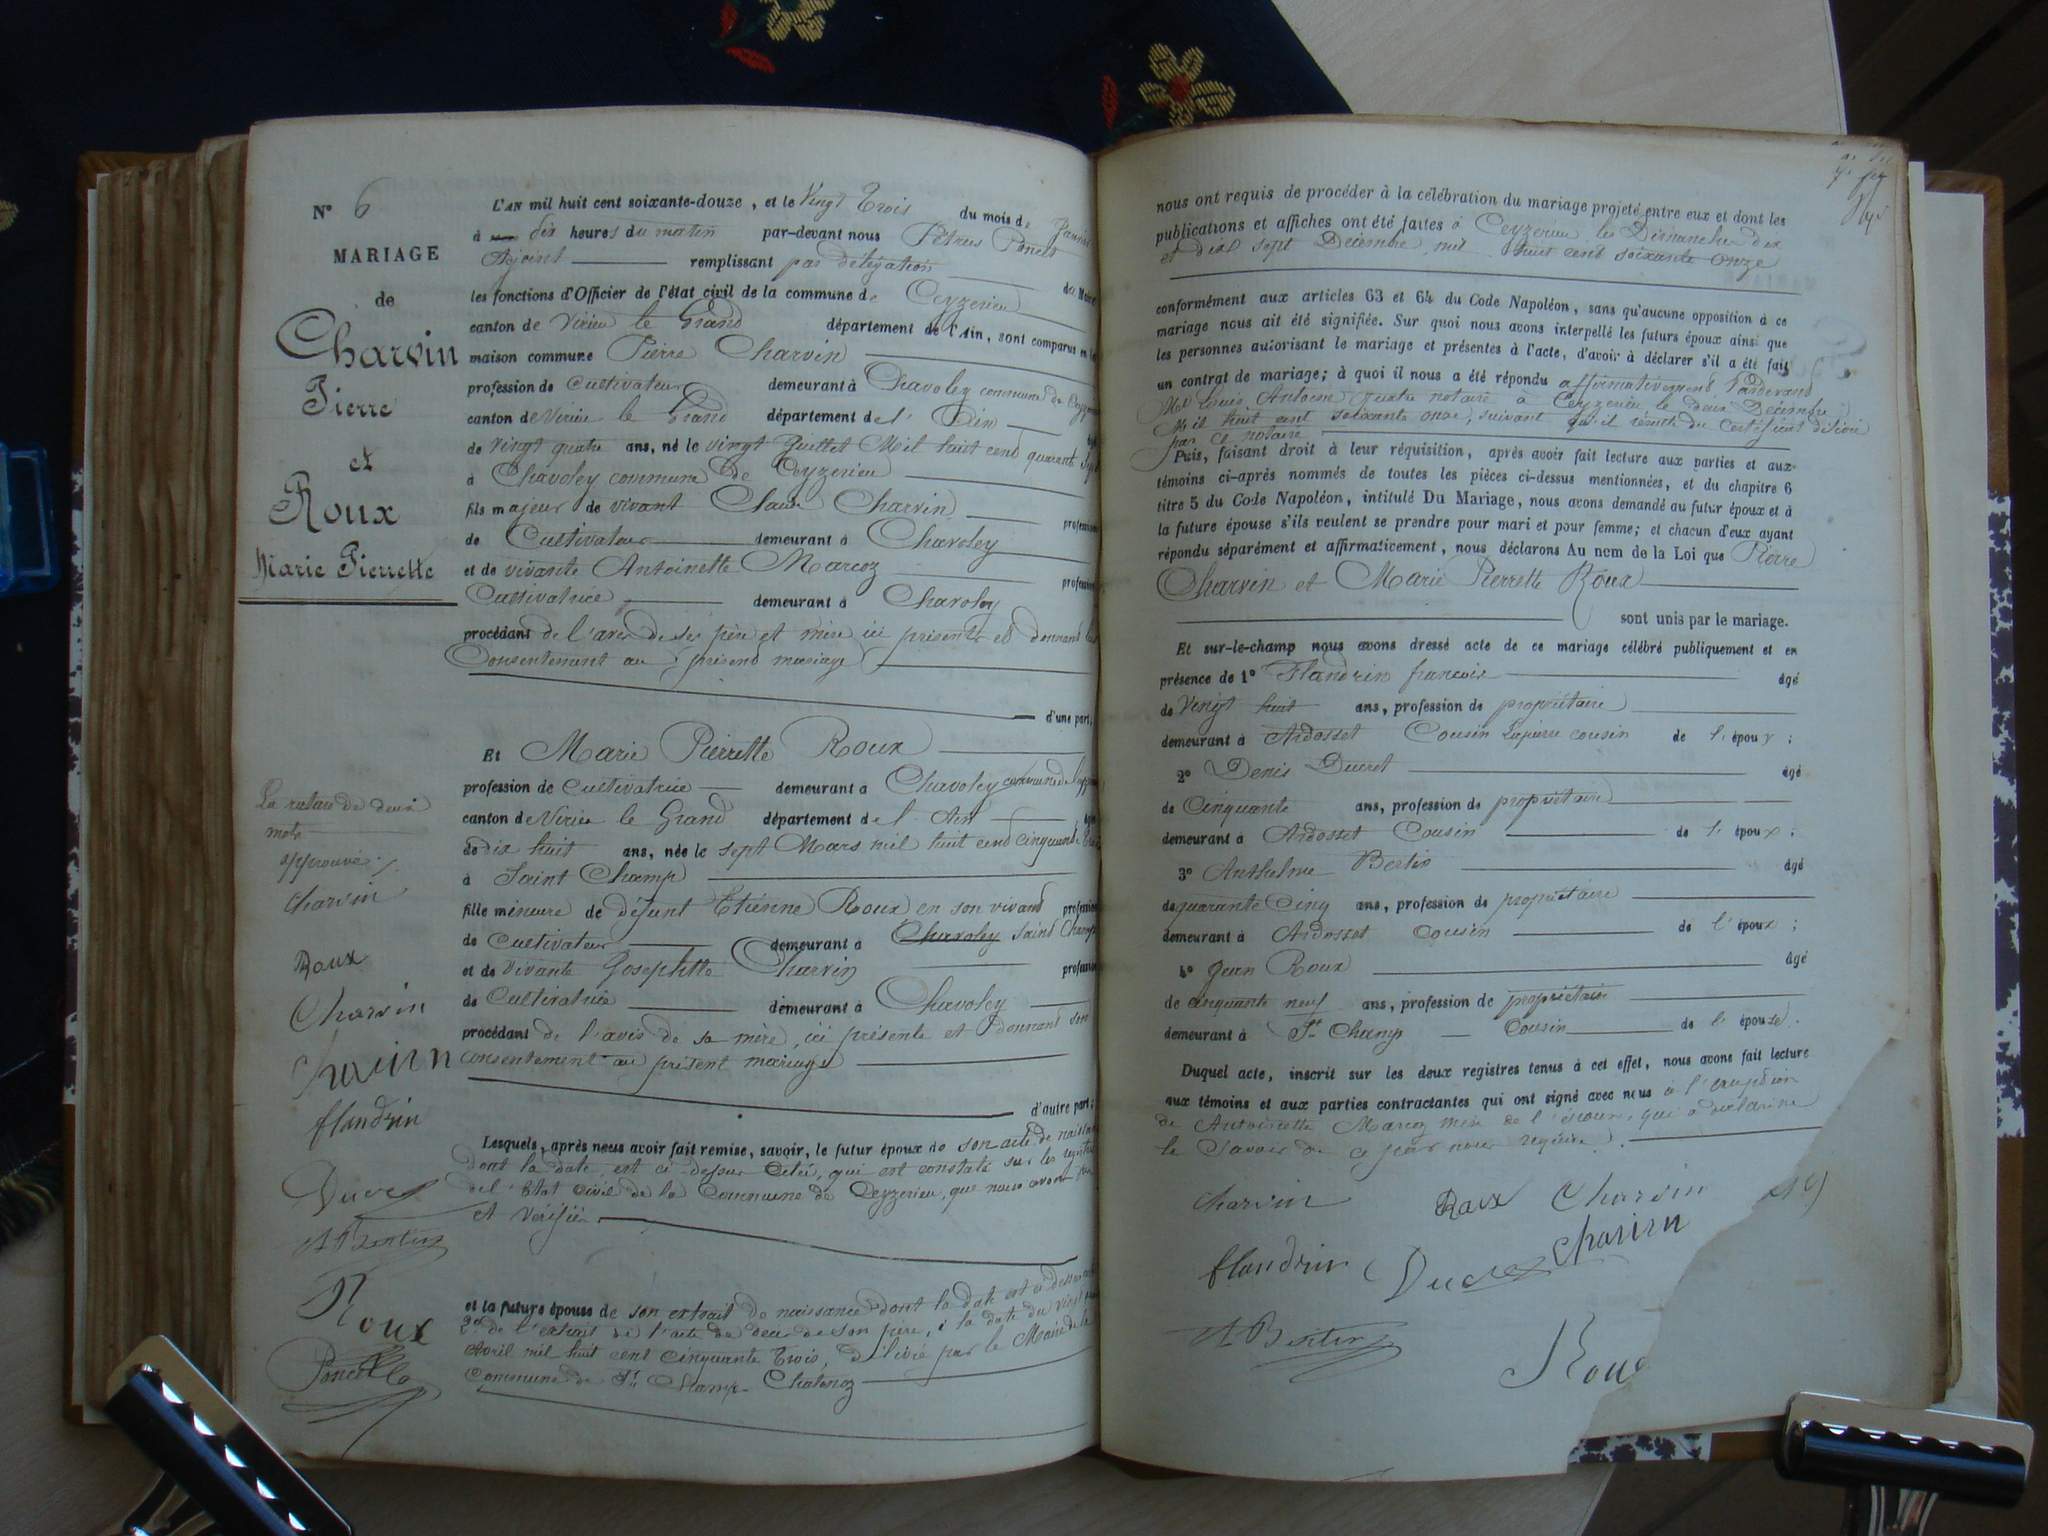 N° 6
MARIAGE
de
Charvin
Pierre
et
Roux
Marie Pierrette
La rature de deux
mots
approuvée
Charvin
Roux
Charvin
Charvin
flandrin
Ducret
A Bertin
Roux
Poncet
L'AN mil huit cent soixante-douze, et le Vingt Trois du mois de Janvier
à dix heures du matin par-devant nous Pétrus Poncet
Adjoint remplissant par délégation du Maire
les fonctions d'Officier de l'état civil de la commune de Ceyzerieu
canton de Virieu le Grand département de l'Ain, sont comparus en la
maison commune Pierre Charvin
profession de Cultivateur demeurant à Chavoley commune de Ceyzerieu
canton de Virieu le Grand département de l' Ain âgé
de vingt quatre ans, né le vingt Juillet Mil huit cent quarante sept
à Chavoley commune de Ceyzerieu
fils majeur de vivant Claude Charvin profession
de Cultivateur demeurant à Chavoley
et de vivante Antoinette Marcoz profession
Cultivatrice demeurant à Chavoley
procédant de l'avis de ses père et mère ici présents et donnant leur
Consentement au présent mariage
d'une part;
Et Marie Pierrette Roux
profession de Cultivatrice demeurant à Chavoley commune de Ceyzerieu
canton de Virieu le Grand département de l' Ain âgée
de dix huit ans, née le sept Mars mil huit cent cinquante trois
à Saint Champ
fille mineure de défunt Etienne Roux en son vivant profession
de Cultivateur demeurant à Chavoley Saint Champ
et de vivante Josephtte Charvin profession
de Cultivatrice demeurant à Chavoley
procédant de l'avis de sa mère, ici présente et donnant son
consentement au présent mariage
d'autre part;
Lesquels, après nous avoir fait remise, savoir, le futur époux de son acte de naissance
dont la date est ci-dessus citée, qui est constaté sur les registres
de l'Etat Civil de la Commune de Ceyzerieu, que nous avons
et vérifié
et la future épouse de son extrait de naissance dont la date est ci dessus
2° de l'extrait de l'acte de décès de son père, à la date du vingt
avril mil huit cent cinquante Trois, délivré par le Maire de la
Commune de St Champ Chatonoz
nous ont requis de procéder à la célébration du mariage projeté entre eux et dont les
publications et affiches ont été faites à Ceyzerieu les Dimanches dix
et dix sept Décembre mil huit cent soixante onze
conformément aux articles 63 et 64 du Code Napoléon, sans qu'aucune opposition à ce
mariage nous ait été signifiée. Sur quoi nous avons interpellé les futurs époux ainsi que
les personnes autorisant le mariage et présentes à l'acte, d'avoir à déclarer s'il a été fait
un contrat de mariage; à quoi il nous a été répondu affirmativement Pardevant
Me Louis Antoine notaire à Ceyzerieu le deux Décembre
Mil huit cent soixante onze, suivant qu'il résulte du certificat délivré
par ce notaire
Puis, faisant droit à leur réquisition, après avoir fait lecture aux parties et aux
témoins ci-après nommés de toutes les pièces ci-dessus mentionnées, et du chapitre 6
titre 5 du Code Napoléon, intitulé Du Mariage, nous avons demandé au futur époux et à
la future épouse s'ils veulent se prendre pour mari et pour femme; et chacun d'eux ayant
répondu séparément et affirmativement, nous déclarons Au nom de la Loi que Pierre
Charvin et Marie Pierrette Roux
sont unis par le mariage.
Et sur-le-champ nous avons dressé acte de ce mariage célébré publiquement et en
présence de 1° Flandrin françois âgé
de Vingt huit ans, profession de propriétaire
demeurant à Ardosset Cousin cousin de l' époux;
2° Denis Ducret âgé
de Cinquante ans, profession de propriétaire
demeurant à Ardosset Cousin de l' époux;
3° Anthelme Bertin âgé
de quarante Cinq ans, profession de propriétaire
demeurant à Ardosset Cousin de l' époux;
4° Jean Roux âgé
de cinquante neuf ans, profession de propriétaire
demeurant à St Champ Cousin de l' épouse.
Duquel acte, inscrit sur les deux registres tenus à cet effet, nous avons fait lecture
aux témoins et aux parties contractantes qui ont signé avec nous à l'exception
de Antoinette Marcoz mère de l'époux, qui a déclaré ne
le Savoir de ce faire requise.
Charvin Roux Charvin
flandrin Ducret Charvin
A Bertin
Roux